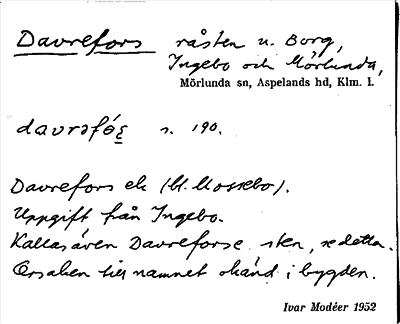 Davrefors råsten u. Borg,
Ingebo och Mörlunda,
Mörlunda sn, Aspelands hd, Klm. l.
davrəfós s. 190.
Davrefors ek (St. Mossebo).
Uppgift från Ingebo.
Kallas även Davreforse sten, se detta.
Orsaken till namnet okänd i bygden.
Ivar Modéer 1952